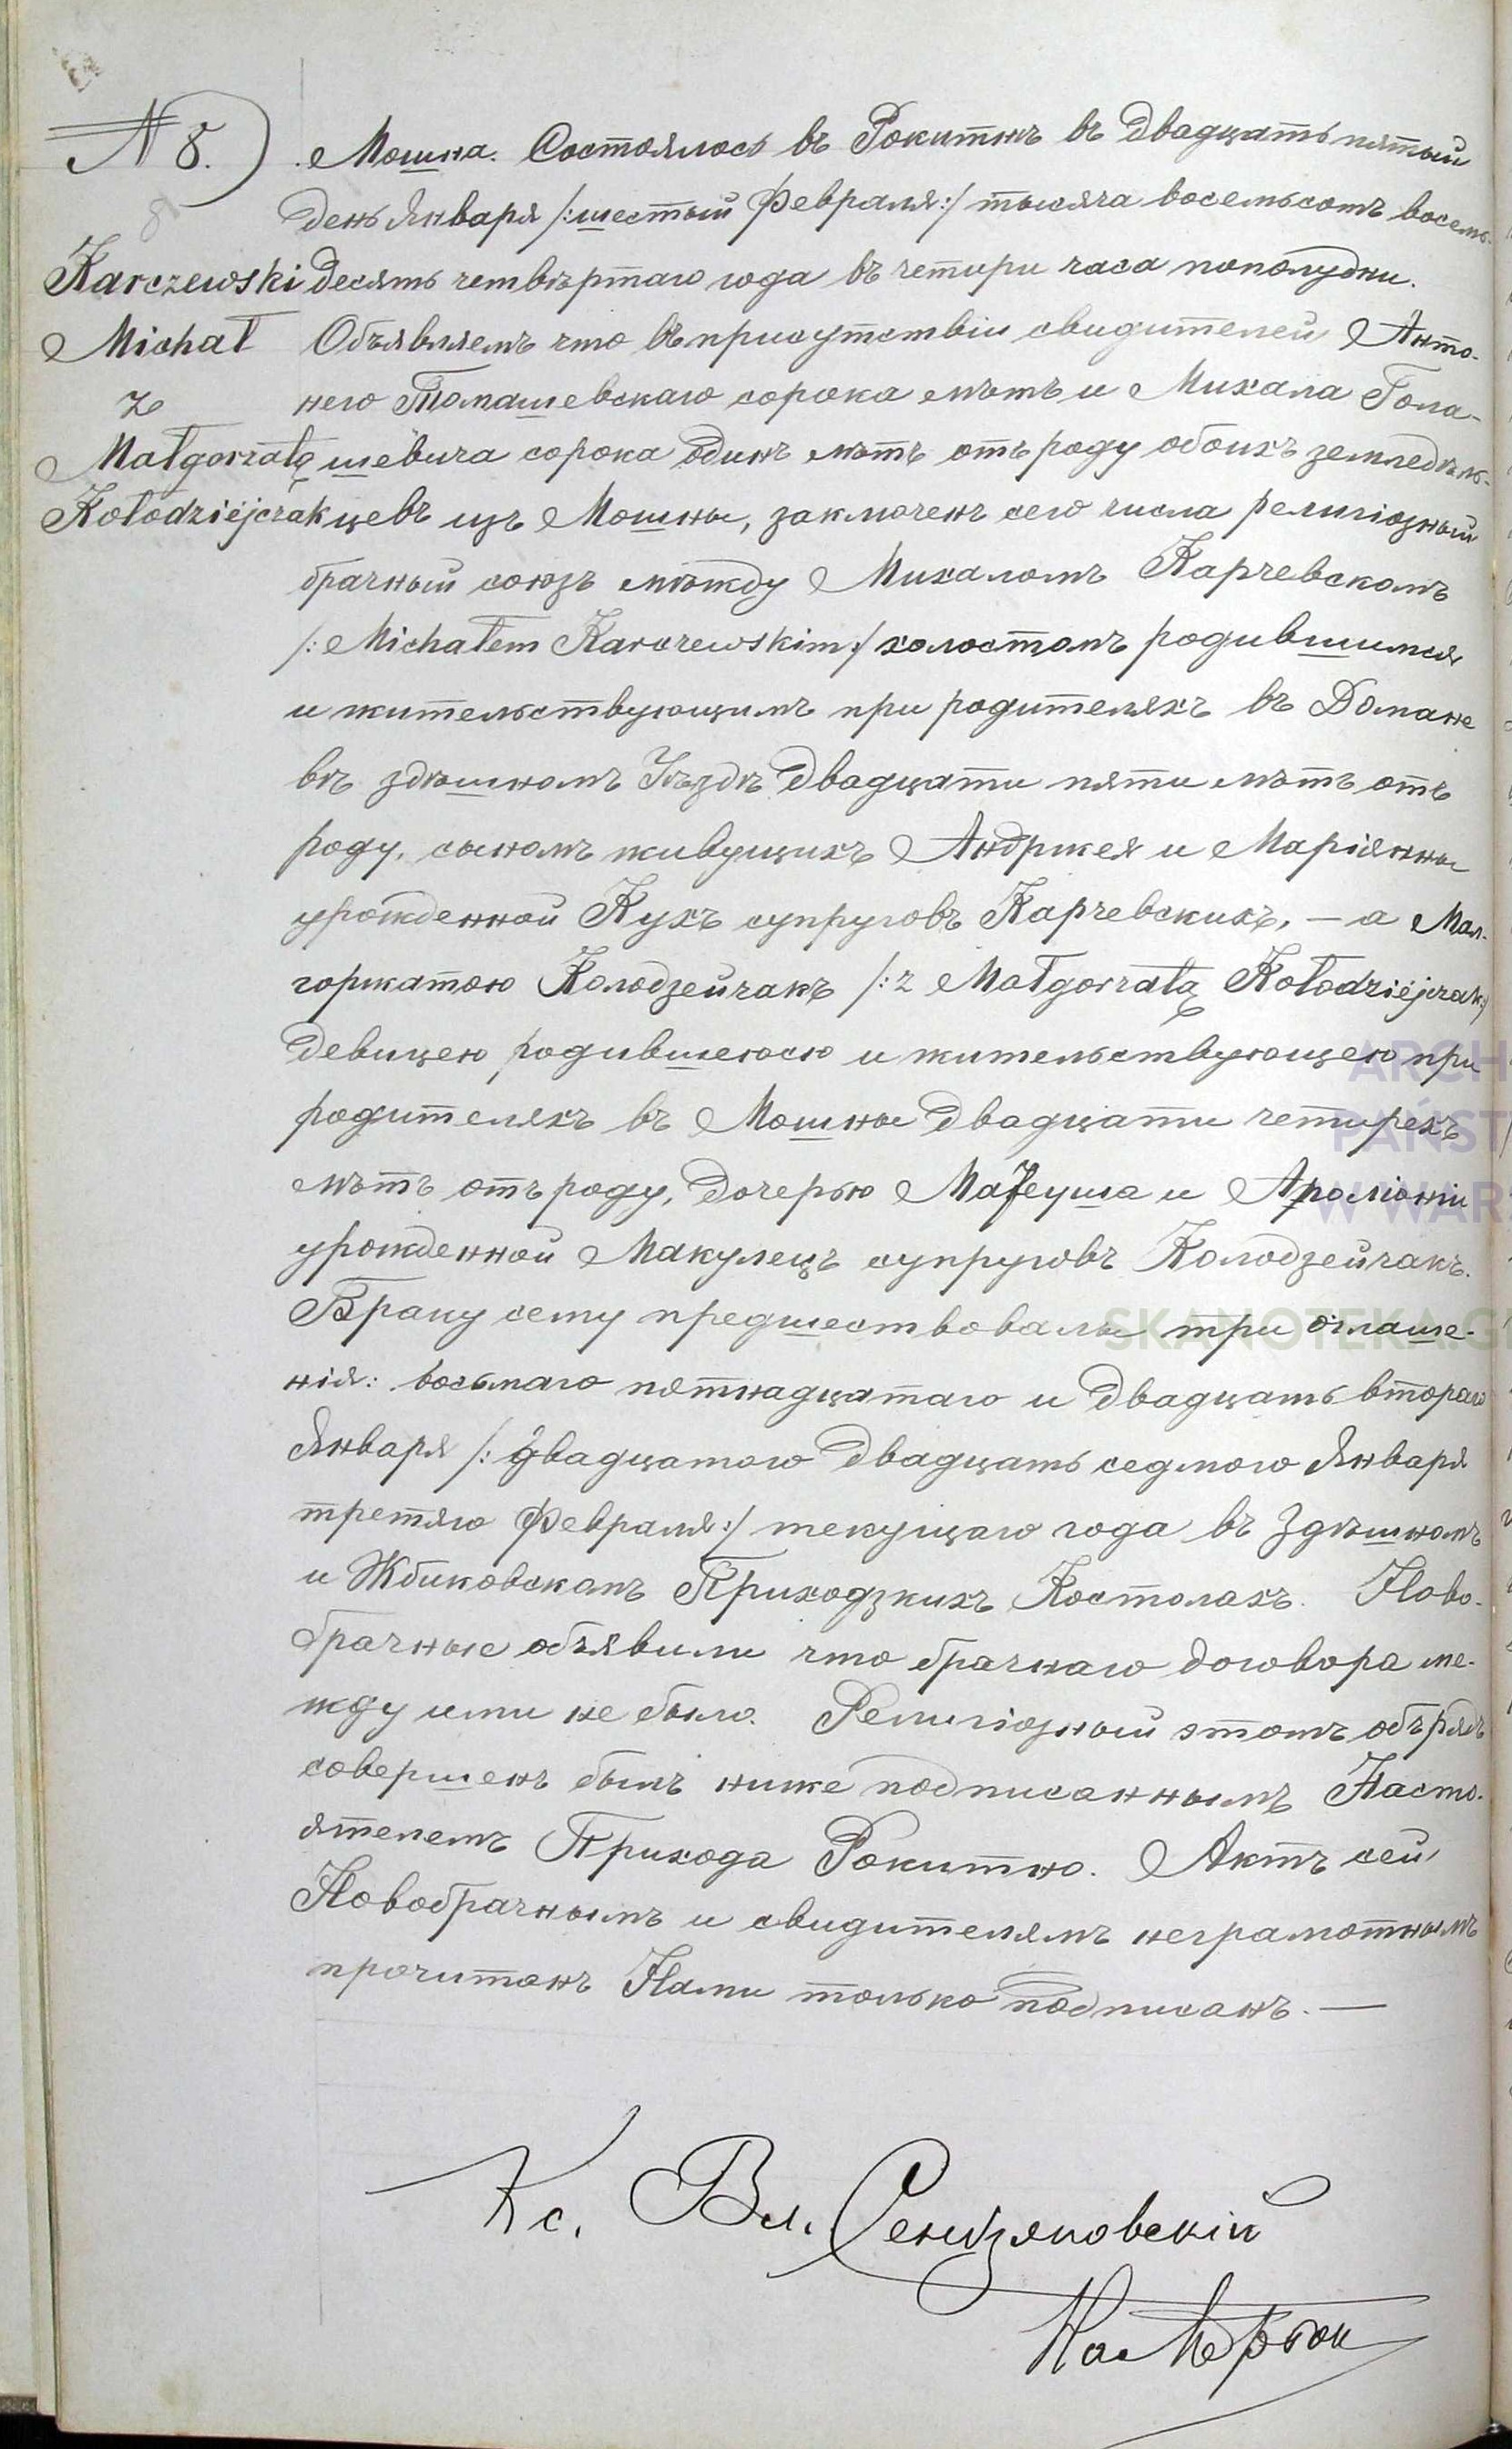 N 8.
8
Karczewski
Michał
z
Małgorzatą
Kołodziejczak
Мошна. Состоялось въ Рокитнѣ въ двадцать пятый
день Января /:шестый Февраля:/ тысяча восемьсотъ восемь-
десять четвѣртаго года въ четыри часа пополудни.
Объявляемъ что въ присутствіи свидителей Анто-
него Томашевскаго сорока лѣтъ и Михала Гола-
шевича сорока одинъ лѣтъ отъ роду обоихъ земледѣль-
цевъ изъ Мошны, заключенъ сего числа религіозный
брачный союзъ мѣжду Михаломъ Карчевскомъ
/:Michałem Karczewskim:/ холостомъ родившимся
и жительствующимъ при родителяхъ въ Домане
въ здѣшномъ Уѣздѣ двадцати пяти лѣтъ отъ
роду, сыномъ живущихъ Андржея и Маріянны
урожденной Кухъ супруговъ Карчевскихъ, — а Мал-
горжатою Колодзейчакъ /:z Małgorzatą Kołodziejczak:/
девицею родившеюсю и жительствующею при
родителяхъ въ Мошны двадцати четырехъ
лѣтъ отъ роду, дочерью Матеуша и Аполіоніи
урожденной Макулецъ супруговъ Колодзейчакъ.
Браку сему предшествовалы три оглаше-
нія: восьмаго пятнадцатаго и двадцать втораго
Января /:двадцатого двадцать седмого Января
третяго Февраля:/ текущаго года въ Здѣшномъ
и Жбиковскомъ Приходзкихъ Костолахъ. Ново-
брачные объявили что брачнаго договора ме-
жду ими не было. Религіозный этотъ обърядъ
совершенъ былъ ниже подписаннымъ Насто-
ятелемъ Прихода Рокитно. Актъ сей
Новобрачнымъ и свидителямъ неграмотнымъ
прочитанъ Нами только подписанъ. —
Кс. Вл. Сендзяковскій
ARCH
PAŃST
W WAR
SKANOTEKA.G